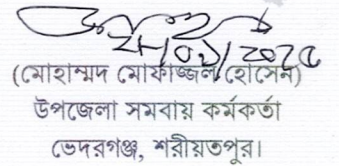 ২৮/০১/২০২৫
(মোহাম্মদ মোফাজ্জল হোসেন)
উপজেলা সমবায় কর্মকর্তা
ভেদরগঞ্জ, শরীয়তপুর।